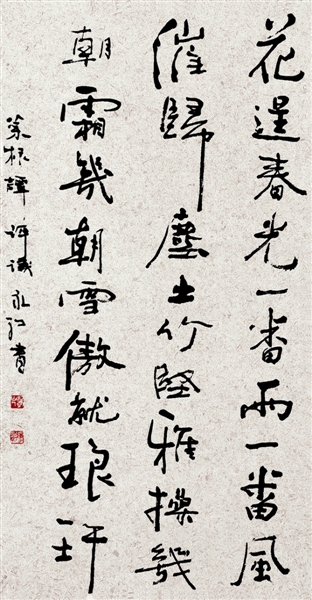 花逞春光一番雨一番風
催歸塵土竹堅雅操幾
朝霜幾朝雪傲就琅玕
菜根譚 評議 永江書